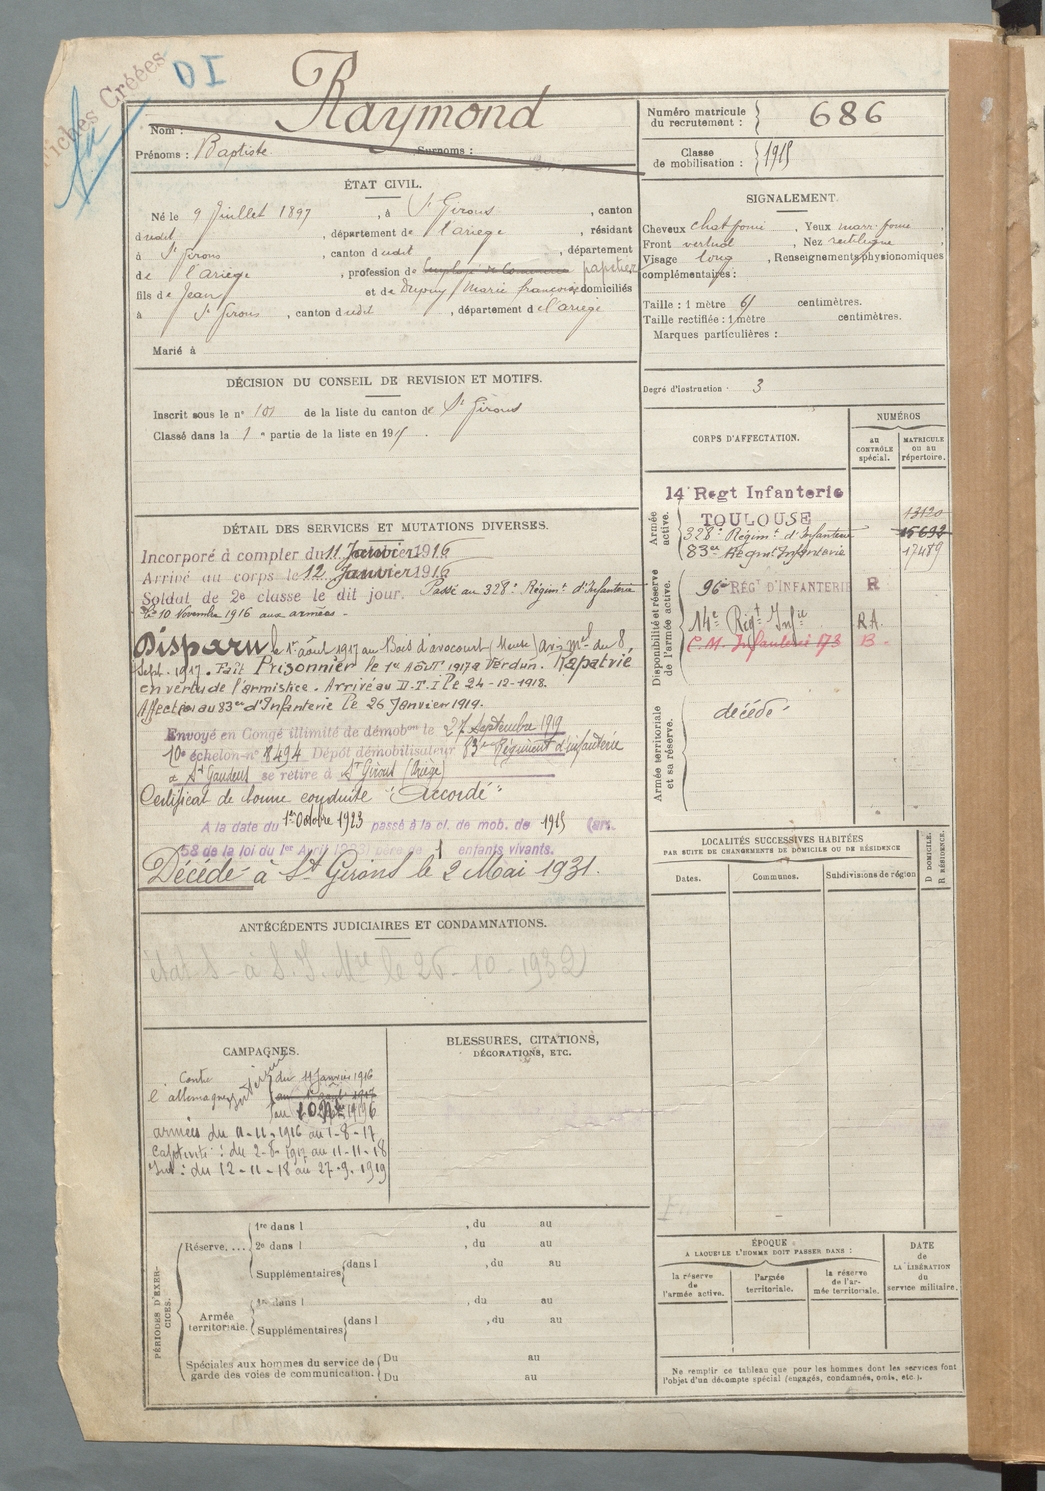 Fiches Créées
DI
Nom : Raymond
Prénoms : Baptiste Surnoms :
Numéro matricule du recrutement : 686
Classe de mobilisation : 1915
ÉTAT CIVIL.
Né le 9 Juillet 1897, à St Girons, canton
dudit, département de l'ariege, résidant
à St Girons, canton dudit, département
de l'ariege, profession de employé de commerce papetier
fils de Jean et de Dupuy Marie françoise domiciliés
à St Girons, canton dudit, département de l'ariege
Marié à
SIGNALEMENT.
Cheveux chat fonc, Yeux marr. fonc,
Front vertical, Nez rectiligne,
Visage long, Renseignements physionomiques
complémentaires :
Taille : 1 mètre 61 centimètres.
Taille rectifiée : 1 mètre centimètres.
Marques particulières :
Degré d'instruction : 3
DÉCISION DU CONSEIL DE REVISION ET MOTIFS.
Inscrit sous le n° 101 de la liste du canton de St Girons
Classé dans la 1e partie de la liste en 191
CORPS D'AFFECTATION.
NUMÉROS
au CONTRÔLE spécial.
MATRICULE ou au répertoire.
Armée active.
14e Regt Infanterie
TOULOUSE
13120
328e Régimt d'Infanterie 15692
83e Régmt Infanterie 17489
Disponibilité et réserve de l'armée active.
96e RÉGt D'INFANTERIE R
14e Régt Infie RA.
C.M. Infanterie 173 B
Armée territoriale et sa réserve.
décédé
DÉTAIL DES SERVICES ET MUTATIONS DIVERSES.
Incorporé à compter du 11 Janvier 1916
Arrivé au corps le 12 Janvier 1916
Soldat de 2e classe le dit jour. Passé au 328e Régimt d'Infanterie
le 10 Novembre 1916 aux armées -
Disparu le 1er août 1917 au Bois d'avocourt (Meuse) avis mel du 8
Sept. 1917. Fait Prisonnier le 1er Août 1917 à Verdun. Rapatrié
en vertu de l'armistice. Arrivé au D.T.I le 24-12-1918.
Affecté au 83e d'Infanterie le 26 Janvier 1919.
Envoyé en Congé illimité de démobon le 27 Septembre 1919
10e échelon n° 8494 Dépôt démobilisateur 83e Régiment d'infanterie
à St Gaudens se retire à St Girons (Ariège)
Certificat de bonne conduite "Accordé"
A la date du 1er Octobre 1923 passé à la cl. de mob. de 1915 (art.
58 de la loi du 1er Avril 1923) père de 1 enfants vivants.
Décédé à St Girons le 2 Mai 1931.
LOCALITÉS SUCCESSIVES HABITÉES
PAR SUITE DE CHANGEMENTS DE DOMICILE OU DE RÉSIDENCE
Dates.
Communes.
Subdivisions de région
D DOMICILE.
R RÉSIDENCE.
ANTÉCÉDENTS JUDICIAIRES ET CONDAMNATIONS.
état S - à S.S. Mre le 26-10-1932
CAMPAGNES.
Contre
l'allemagne
du 11 Janvier 1916
au 1er août 1917
au 10 1916
armées du 11-11-1916 au 1-8-17
captivité : du 2-8-1917 au 11-11-18
Int : du 12-11-18 au 27-9-1919
BLESSURES, CITATIONS,
DÉCORATIONS, ETC.
PÉRIODES D'EXERCICES.
Réserve....
1re dans l , du au
2e dans l , du au
Supplémentaires dans l , du au
Armée territoriale.
1re dans l , du au
Supplémentaires dans l , du au
Spéciales aux hommes du service de garde des voies de communication.
Du au
Du au
ÉPOQUE
A LAQUELLE L'HOMME DOIT PASSER DANS :
la réserve de l'armée active.
l'armée territoriale.
la réserve de l'armée territoriale.
DATE de LA LIBÉRATION du service militaire.
Ne remplir ce tableau que pour les hommes dont les services font
l'objet d'un décompte spécial (engagés, condamnés, omis, etc.).